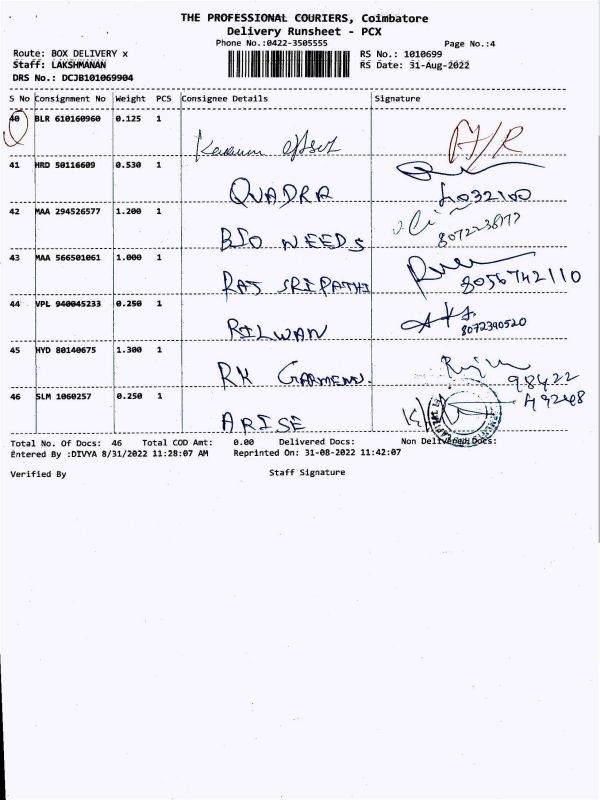 THE PROFESSIONAL COURIERS, Coimbatore
Delivery Runsheet - PCX
Phone No.:0422-3505555 Page No.:4
Route: BOX DELIVERY x RS No.: 1010699
Staff: LAKSHMANAN RS Date: 31-Aug-2022
DRS No.: DCJB101069904
S No Consignment No Weight PCS Consignee Details Signature
40 BLR 610160960 0.125 1
A/R
41 HRD 50116609 0.530 1
QUADRA
42 MAA 294526577 1.200 1
BIO NEEDS
43 MAA 566501061 1.000 1
RAJ SRIPATHI 8056742110
44 VPL 940045233 0.250 1
RILWAN 8072390520
45 HYD 80140675 1.300 1
RK 98422
46 SLM 1060257 0.250 1
ARISE
Total No. Of Docs: 46 Total COD Amt: 0.00 Delivered Docs: Non Delivered Docs:
Entered By :DIVYA 8/31/2022 11:28:07 AM Reprinted On: 31-08-2022 11:42:07
Verified By Staff Signature